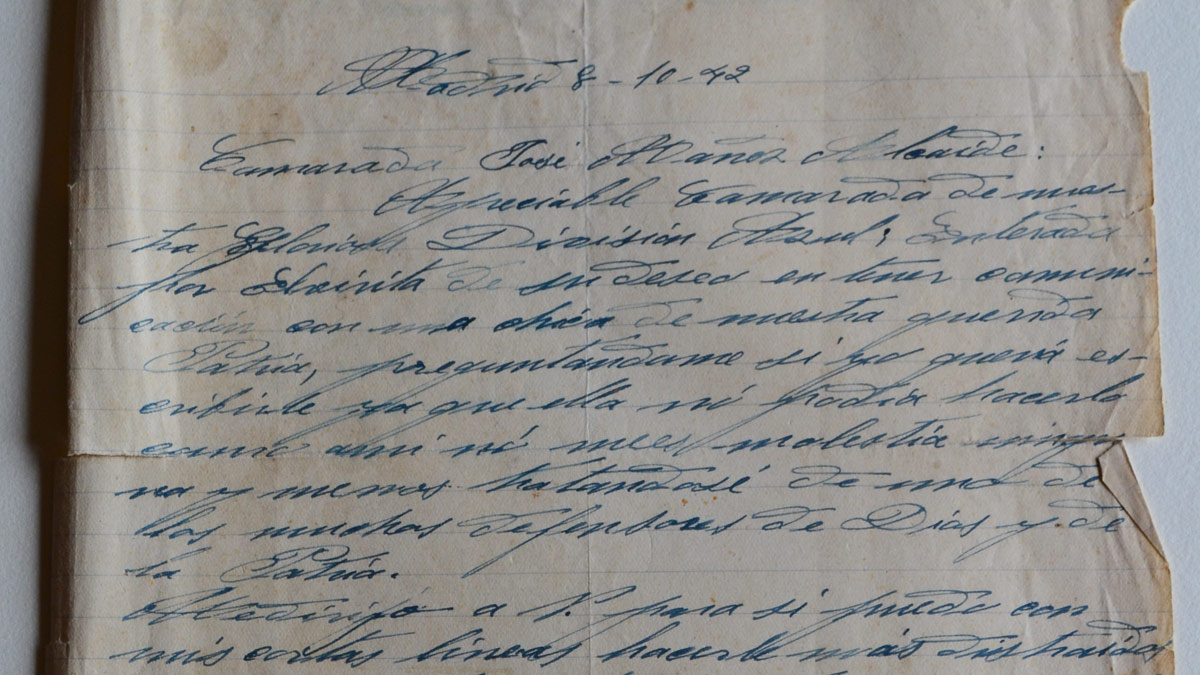 Madrid 8-10-42
Camarada José Mañas Alcaide:
Apreciable Camarada de nues-
tra Gloriosa División Azul; Enterada
por Elvirita de su deseo en tener comuni-
cación con una chica de nuestra querida
Patria, preguntandome si yo quería es-
cribirle ya que ella no podia hacerlo
como a mi no me es molestia ningu
na y menos tratandosé de uno de
los muchos defensores de Dios y de
la Patria.
Me dirijo a V. para si puedo con
mis cortas lineas hacerle más distraidos